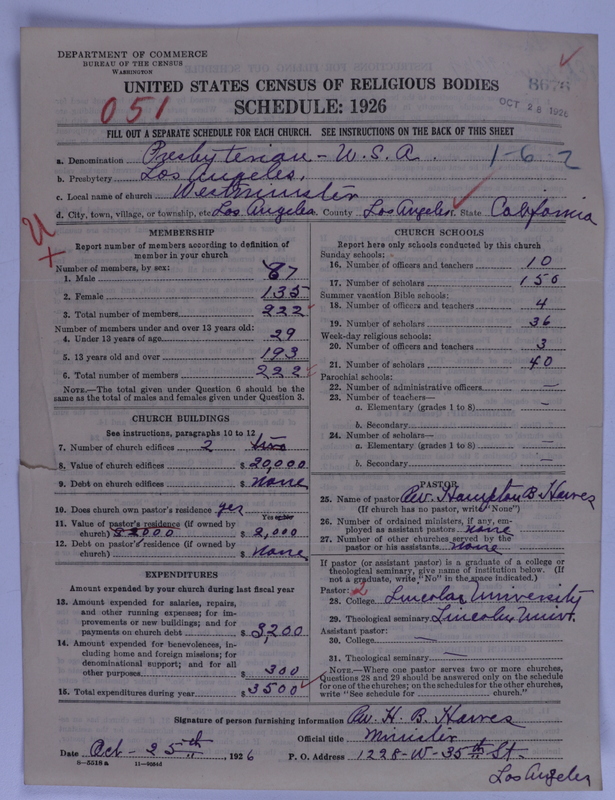 DEPARTMENT OF COMMERCE
BUREAU OF THE CENSUS
WASHINGTON
UNITED STATES CENSUS OF RELIGIOUS BODIES
SCHEDULE: 1926
051
8676
OCT 28 1926
FILL OUT A SEPARATE SCHEDULE FOR EACH CHURCH. SEE INSTRUCTIONS ON THE BACK OF THIS SHEET
a. Denomination Presbyterian - U.S.A. 1-6-2
b. Presbytery Los Angeles.
c. Local name of church Westminster
d. City, town, village, or township, etc. Los Angeles. County Los Angeles f. State California
MEMBERSHIP
Report number of members according to definition of
member in your church
Number of members, by sex:
1. Male 87
2. Female 135
3. Total number of members 222
Number of members under and over 13 years old:
4. Under 13 years of age 29
5. 13 years old and over 193
6. Total number of members 222
NOTE.—The total given under Question 6 should be the
same as the total of males and females given under Question 3.
CHURCH BUILDINGS
See instructions, paragraphs 10 to 12
7. Number of church edifices 2 two
8. Value of church edifices $ 20,000
9. Debt on church edifices $ none
10. Does church own pastor's residence yes
Yes or No
11. Value of pastor's residence (if owned by
church) $2000 $ 2,000
12. Debt on pastor's residence (if owned by
church) $ none
EXPENDITURES
Amount expended by your church during last fiscal year
13. Amount expended for salaries, repairs,
and other running expenses; for im-
provements or new buildings; and for
payments on church debt $ 3,200
14. Amount expended for benevolences, in-
cluding home and foreign missions; for
denominational support; and for all
other purposes $ 300
15. Total expenditures during year $ 3500
CHURCH SCHOOLS
Report here only schools conducted by this church
Sunday schools:
16. Number of officers and teachers 10
17. Number of scholars 150
Summer vacation Bible schools:
18. Number of officers and teachers 4
19. Number of scholars 36
Week-day religious schools:
20. Number of officers and teachers 3
21. Number of scholars 40
Parochial schools:
22. Number of administrative officers —
23. Number of teachers—
a. Elementary (grades 1 to 8) —
b. Secondary —
24. Number of scholars—
a. Elementary (grades 1 to 8) —
b. Secondary —
PASTOR
25. Name of pastor Rev. Hampton B. Hawes
(If church has no pastor, write "None")
26. Number of ordained ministers, if any, em-
ployed as assistant pastors none
27. Number of other churches served by the
pastor or his assistants none
If pastor (or assistant pastor) is a graduate of a college or
theological seminary, give name of institution below. (If
not a graduate, write "No" in the space indicated.)
Pastor: 2
28. College Lincoln University
29. Theological seminary Lincoln Univ.
Assistant pastor:
30. College —
31. Theological seminary —
NOTE.—Where one pastor serves two or more churches,
Questions 28 and 29 should be answered only on the schedule
for one of the churches; on the schedules for the other churches,
write "See schedule for church."
Signature of person furnishing information Rev. H. B. Hawes
Official title Minister
Date Oct - 25th, 1926 P. O. Address 1228-W-35th St.
8-5318a 11-9084d
Los Angeles